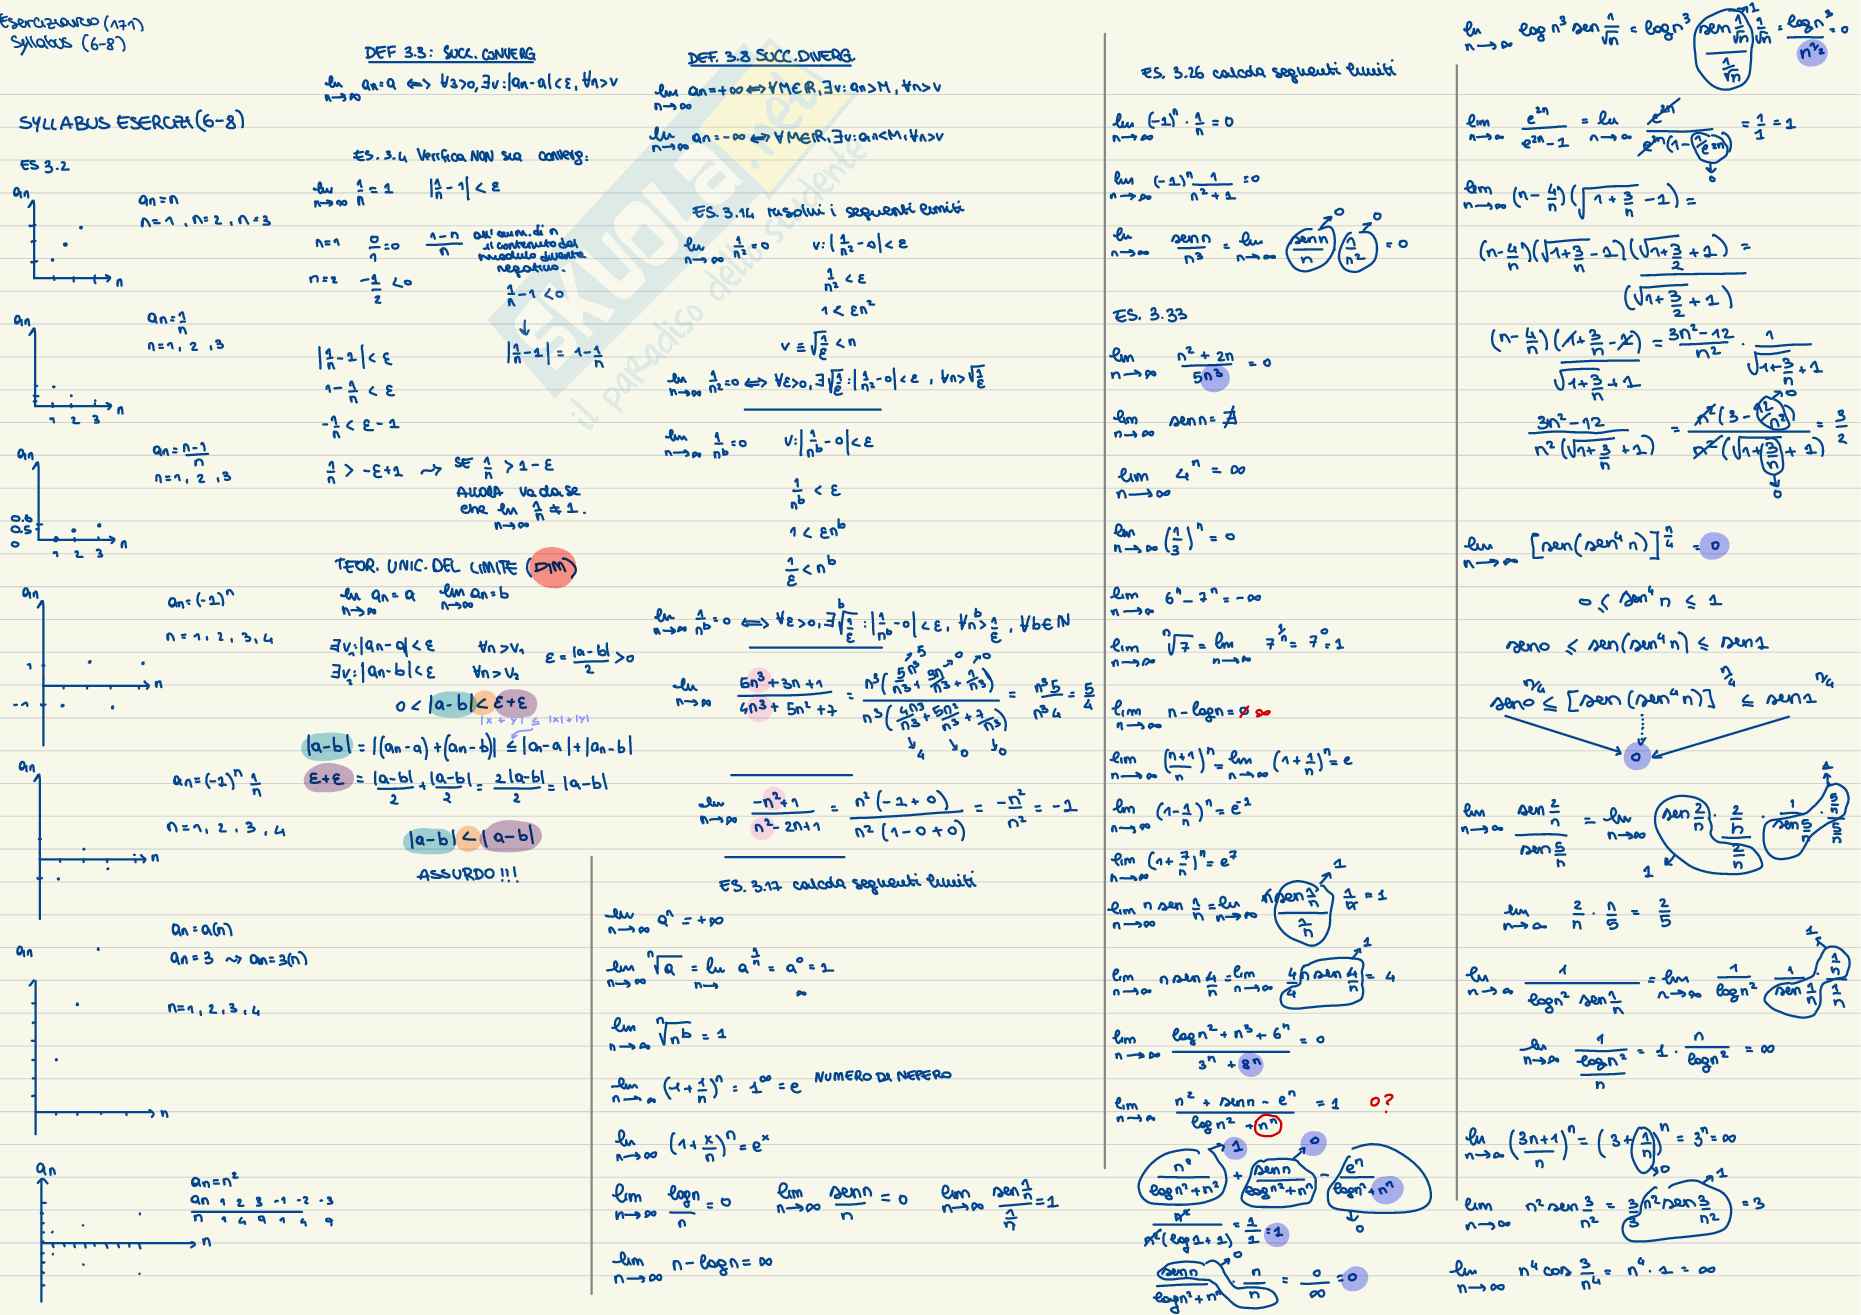 Eserciziario (171)
Syllabus (6-8)
SYLLABUS ESERCIZI (6-8)
ES 3.2
an
an = n
n=1, n=2, n=3
n
an
an = 1/n
n=1, 2, 3
1 2 3 n
an
an = n-1/n
n=1, 2, 3
0.6
0.5
0
1 2 3 n
an
an = (-1)^n
n = 1, 2, 3, 4
1
-1
n
an
an = (-1)^n 1/n
n = 1, 2, 3, 4
n
an = a(n)
an
an = 3 ⇝ an = 3(n)
n=1, 2, 3, 4
n
an
an = n²
an 1 2 3 -1 -2 -3
n 1 4 9 1 4 9
n
DEF 3.3: SUCC. CONVERG
lim n→∞ an = a ⟺ ∀ε>0, ∃ν: |an-a|<ε, ∀n>ν
ES. 3.4 Verifica NON sia converg:
lim n→∞ 1/n = 1 |1/n - 1| < ε
n=1 0/1 = 0 1-n/n all'aum. di n
il contenuto del
modulo diventa
negativo.
n=2 -1/2 < 0
1/n - 1 < 0
↓
|1/n - 1| < ε |1/n - 1| = 1 - 1/n
1 - 1/n < ε
-1/n < ε - 1
1/n > -ε+1 ⇝ SE 1/n > 1-ε
ALLORA va da se
che lim n→∞ 1/n ≠ 1.
TEOR. UNIC. DEL LIMITE (DIM)
lim n→∞ an = a lim n→∞ an = b
∃ν₁: |an-a|<ε ∀n>ν₁
∃ν₂: |an-b|<ε ∀n>ν₂ ε = |a-b|/2 > 0
0 < |a-b| < ε+ε
|x+y| ≤ |x|+|y|
|a-b| = |(an-a)+(an-b)| ≤ |an-a|+|an-b|
ε+ε = |a-b|/2 + |a-b|/2 = 2|a-b|/2 = |a-b|
|a-b| < |a-b|
ASSURDO!!!
DEF. 3.8 SUCC. DIVERG
lim n→∞ an = +∞ ⟺ ∀M∈R, ∃ν: an>M, ∀n>ν
lim n→∞ an = -∞ ⟺ ∀M∈R, ∃ν: an<M, ∀n>ν
ES. 3.14 risolvi i seguenti limiti
lim n→∞ 1/n² = 0 ν: |1/n² - 0| < ε
1/n² < ε
1 < εn²
ν ≡ √(1/ε) < n
lim n→∞ 1/n² = 0 ⟺ ∀ε>0, ∃√(1/ε): |1/n² - 0| < ε, ∀n>√(1/ε)
lim n→∞ 1/n^b = 0 ν: |1/n^b - 0| < ε
1/n^b < ε
1 < εn^b
1/ε < n^b
lim n→∞ 1/n^b = 0 ⟺ ∀ε>0, ∃ ᵇ√(1/ε): |1/n^b - 0| < ε, ∀n^b > 1/ε, ∀b∈N
lim n→∞ (5n³+3n+1)/(4n³+5n²+7) = n³(5n³/n³ + 3n/n³ + 1/n³)/n³(4n³/n³ + 5n²/n³ + 7/n³) = n³5/n³4 = 5/4
5 0 0
4 0 0
lim n→∞ (-n²+1)/(n²-2n+1) = n²(-1+0)/n²(1-0+0) = -n²/n² = -1
ES. 3.17 calcola seguenti limiti
lim n→∞ a^n = +∞
lim n→∞ ⁿ√a = lim n→ a^(1/n) = a⁰ = 1
∞
lim n→∞ ⁿ√(n^b) = 1
lim n→∞ (1+1/n)^n = 1^∞ = e NUMERO DI NEPERO
lim n→∞ (1+x/n)^n = e^x
lim n→∞ logn/n = 0 lim n→∞ senn/n = 0 lim n→∞ sen(1/n)/(1/n) = 1
lim n→∞ n - logn = ∞
ES. 3.26 calcola seguenti limiti
lim n→∞ (-1)^n · 1/n = 0
lim n→∞ (-1)^n 1/(n²+1) = 0
lim n→∞ senn/n³ = lim n→∞ (senn/n)(1/n²) = 0
0 0
ES. 3.33
lim n→∞ (n²+2n)/5n³ = 0
lim n→∞ senn = ∄
lim n→∞ 4^n = ∞
lim n→∞ (1/3)^n = 0
lim n→∞ 6^n - 7^n = -∞
lim n→∞ ⁿ√7 = lim n→∞ 7^(1/n) = 7⁰ = 1
lim n→∞ n - logn = ∞
lim n→∞ ((n+1)/n)^n = lim n→∞ (1+1/n)^n = e
lim n→∞ (1-1/n)^n = e⁻¹
lim n→∞ (1+7/n)^n = e⁷
lim n→∞ n sen 1/n = lim n→∞ n sen(1/n)/(1/n) 1/n = 1
1
lim n→∞ n sen 4/n = lim n→∞ 4/4 n sen 4/n = 4
1
lim n→∞ (logn²+n³+6^n)/(3^n+8^n) = 0
lim n→∞ (n²+senn-e^n)/(logn²+n^n) = 1 0?
1 0
n^n/(logn²+n²) + senn/(logn²+n^n) - e^n/(logn²+n^n)
0
n²/n²(log1+1) = 1/1 = 1
senn/(logn²+n²) · n/n = 0/∞ = 0
0
lim n→∞ logn³ sen 1/√n = logn³ (sen(1/√n)/(1/√n)) 1/√n = logn³/n^(1/2) = 0
1
lim n→∞ e^(2n)/(e^(2n)-1) = lim n→∞ e^(2n)/e^(2n)(1-1/e^(2n)) = 1/1 = 1
0
lim n→∞ (n-4/n)(√(1+3/n) - 1) =
(n-4/n)(√(1+3/n) - 1)(√(1+3/2) + 1) =
(√(1+3/2) + 1)
(n-4/n)(1+3/n-1)/(√(1+3/n)+1) = (3n²-12)/n² · 1/(√(1+3/n)+1)
(3n²-12)/n²(√(1+3/n)+1) = n²(3-12/n²)/n²(√(1+3/n)+1) = 3/2
0
0
lim n→∞ [sen(sen⁴n)]^(n/4) = 0
0 ≤ sen⁴n ≤ 1
sen0 ≤ sen(sen⁴n) ≤ sen1
sen0^(n/4) ≤ [sen(sen⁴n)]^(n/4) ≤ sen1^(n/4)
0
lim n→∞ sen(2/n)/sen(5/n) = lim n→∞ sen(2/n) · (2/n)/(2/n) · 1/sen(5/n) · (5/n)/(5/n)
1
1
lim n→∞ 2/n · n/5 = 2/5
lim n→∞ 1/(logn² sen 1/n) = lim n→∞ 1/logn² · 1/sen(1/n) · (1/n)/(1/n)
1
lim n→∞ 1/(logn²/n) = 1 · n/logn² = ∞
lim n→∞ ((3n+1)/n)^n = (3+1/n)^n = 3^n = ∞
0
lim n→∞ n² sen 3/n² = 3/3 n² sen 3/n² = 3
1
lim n→∞ n⁴ cos 3/n⁴ = n⁴ · 1 = ∞
SKUOLA.net
il paradiso dello studente